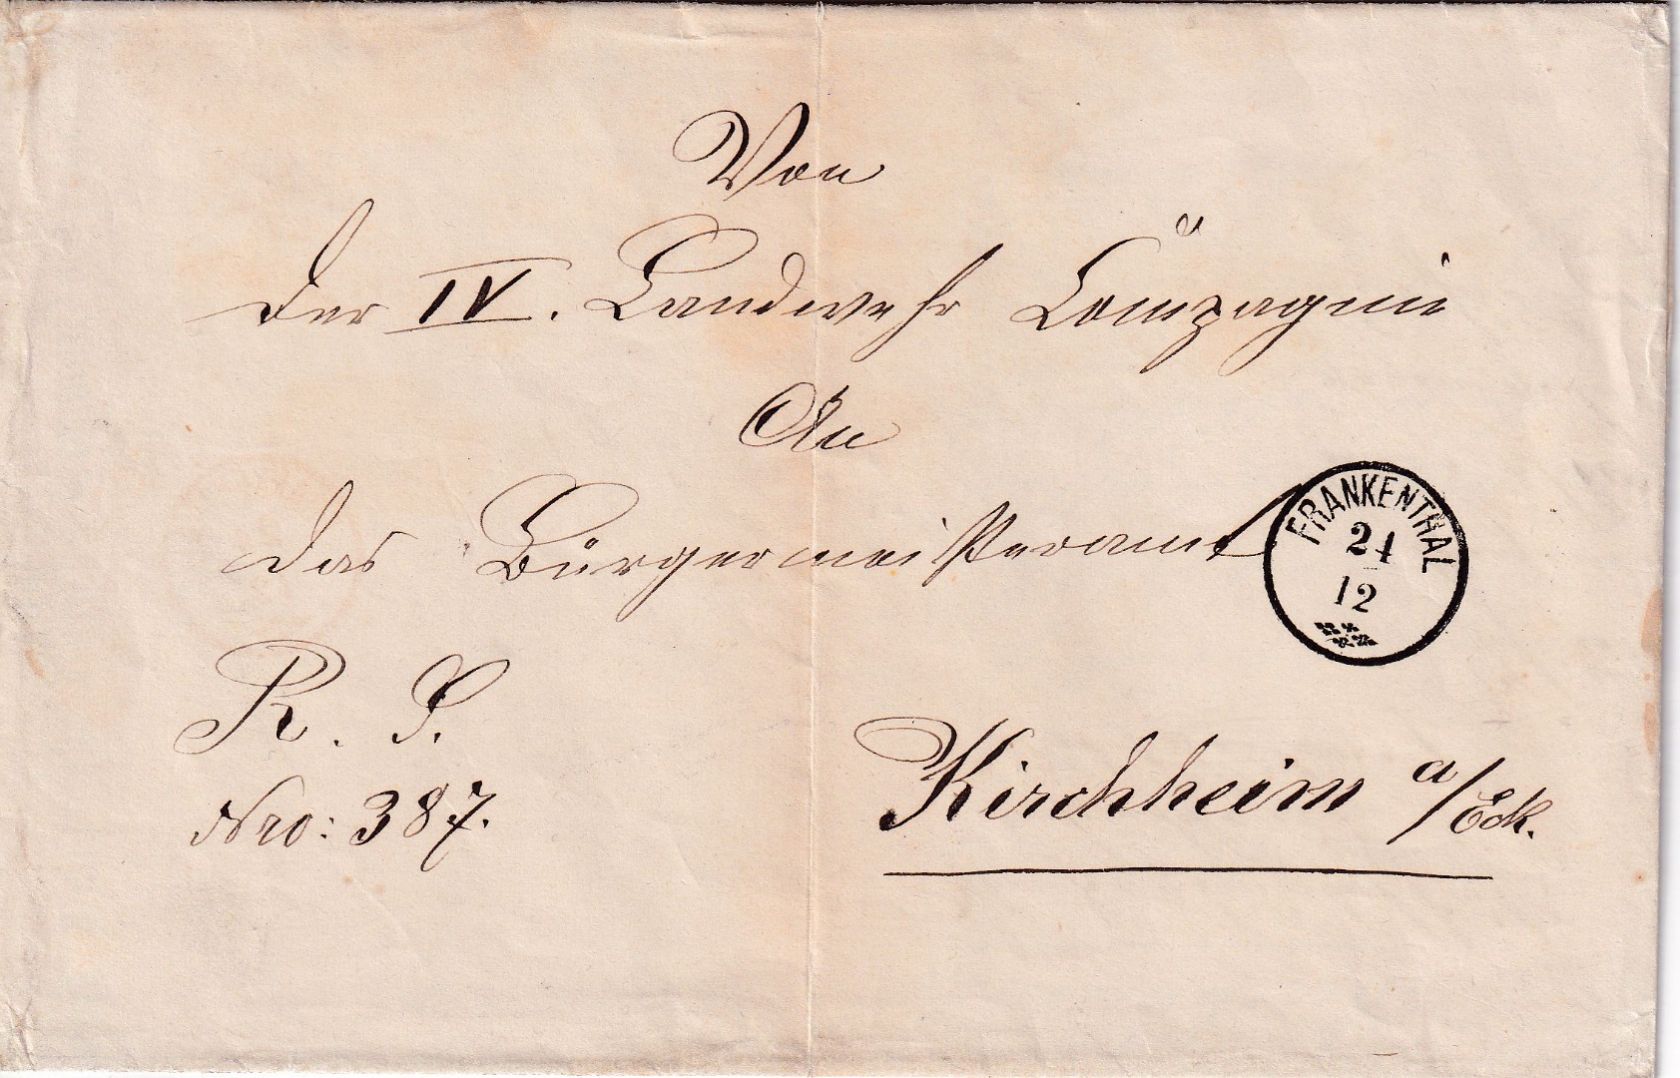 Von
der IV. Landwehr Compagnie
An
das Bürgermeisteramt
FRANKENTHAL
21
12
R. S.
Nro: 387.
Kirchheim a/Eck.